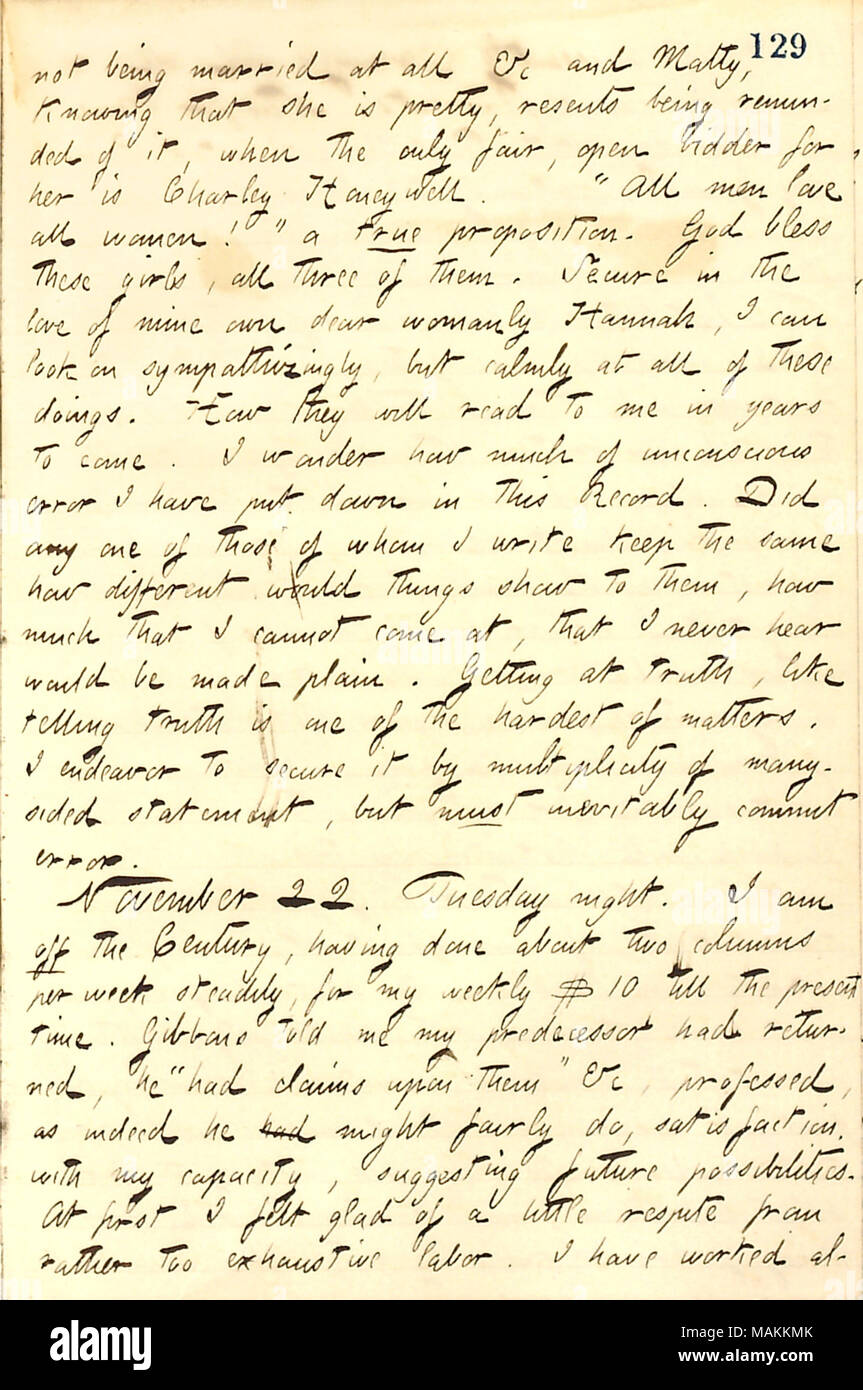 129
not being married at all &c and Matty,
knowing that she is pretty, resents being remin-
ded of it, when the only fair, open bidder for
her is Charley Honeywell. "All men love
all women!" a true proposition. God bless
these girls, all three of them. Secure in the
love of mine own dear womanly Hannah, I can
look on sympathizingly, but calmly at all of these
doings. How they will read to me in years
to come. I wonder how much of unconscious
error I have put down in this Record. Did
any one of those of whom I write keep the same
how different would things show to them, how
much that I cannot come at, that I never hear
would be made plain. Getting at truth, like
telling truth is one of the hardest of matters.
I endeavor to secure it by multiplicity of many-
sided statement, but must inevitably commit
error.
November 22. Tuesday night. I am
off the Century, having done about two columns
per week steadily, for my weekly $10 till the present
time. Gibbons told me my predecessor had retur-
ned, he "had claims upon them" &c, professed,
as indeed he had might fairly do, satisfaction
with my capacity, suggesting future possibilities.
At first I felt glad of a little respite from
rather too exhaustive labor. I have worked al-
alamy
Image ID: MAKKMK
www.alamy.com